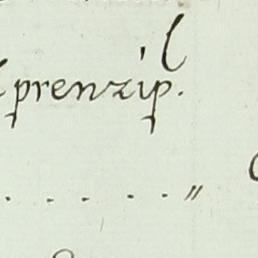 prenzip.l
. . . . . "